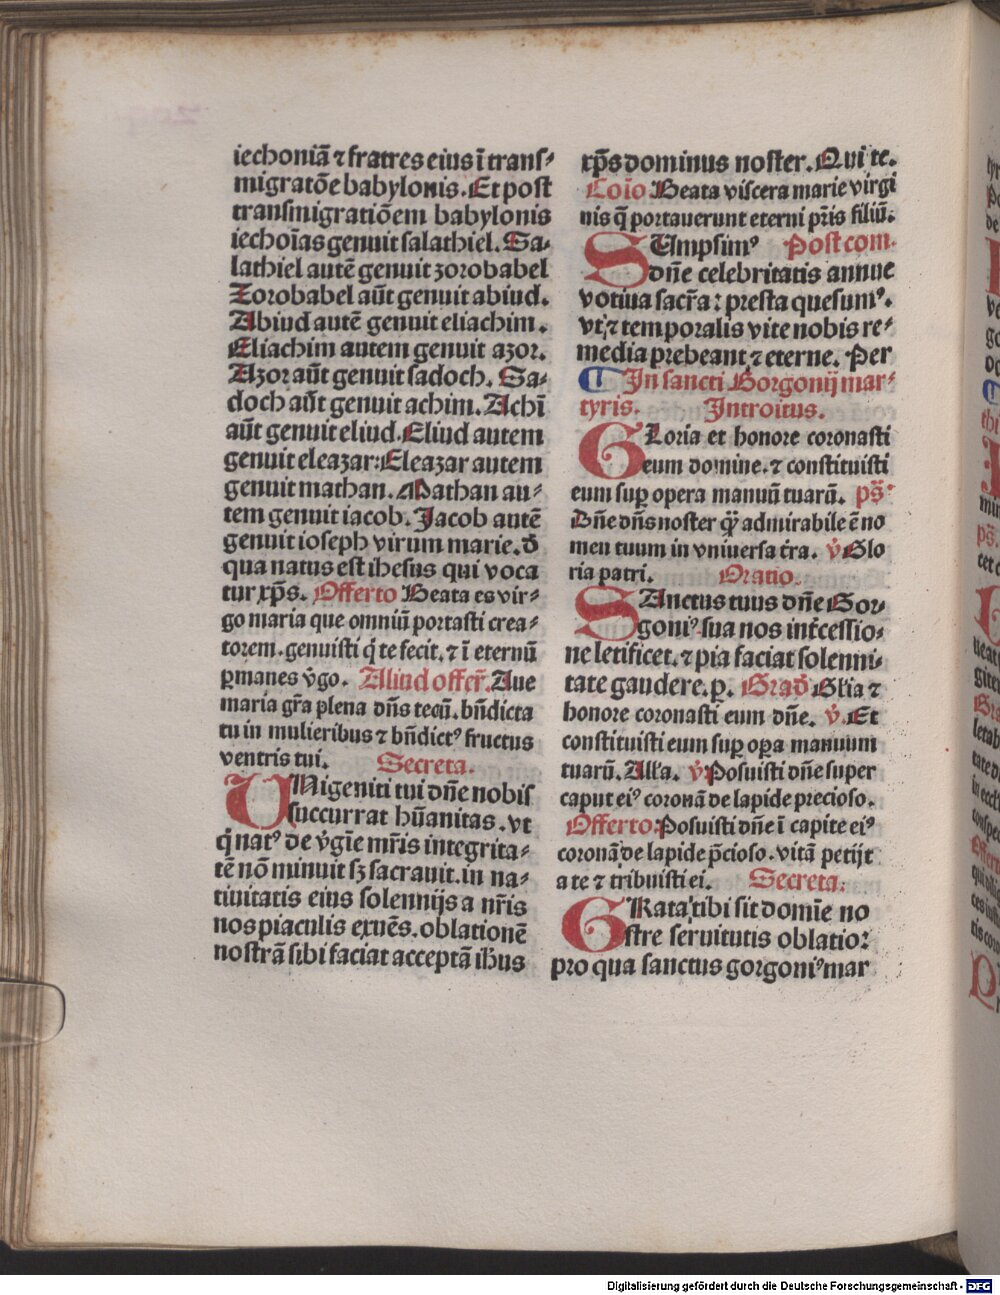 iechoniā ⁊ fratres eius ī trans⸗
migratōe babylonis. Et post
transmigratiōem babylonis
iechoīas genuit salathiel. Sa⸗
lathiel autē genuit zorobabel
Zorobabel aūt genuit abiud.
Abiud autē genuit eliachim.
Eliachim autem genuit azor.
Azor aūt genuit sadoch. Sa⸗
doch aūt genuit achim. Achī
aūt genuit eliud. Eliud autem
genuit eleazar: Eleazar autem
genuit mathan. Mathan au⸗
tem genuit iacob. Jacob autē
genuit ioseph virum marie. d̄
qua natus est ihesus qui voca
tur xp̄s. Offerto Beata es vir⸗
go maria que omniū portasti crea⸗
torem. genuisti q̄ te fecit. ⁊ ī eternū
ꝑmanes v̄go. Aliud offer̄. Aue
maria gr̄a plena dn̄s tecū. bn̄dicta
tu in mulieribus ⁊ bn̄dictꝰ fructus
ventris tui. Secreta.
UNigeniti tui dn̄e nobis
succurrat hūanitas. vt
q̄ natꝰ de v̄gīe mr̄is integrita⸗
tē nō minuit sꝫ sacrauit. in na⸗
tiuitatis eius solennijs a nr̄is
nos piaculis exuēs. oblationē
nostrā sibi faciat acceptā ihūs
xp̄s dominus noster. Qui te.
Coīo Beata viscera marie virgi
nis q̄ portauerunt eterni pr̄is filiū.
SUmpsimꝰ Post com.
dn̄e celebritatis annue
votiua sacr̄a: presta quesumꝰ.
vt; ⁊ temporalis vite nobis re⸗
media prebeant ⁊ eterne. Per
In sancti Gorgonij mar⸗
tyris. Introitus.
GLoria et honore coronasti
eum domine. ⁊ constituisti
eum suꝑ opera manuū tuarū. ps̄
Dn̄e dn̄s noster q̄ꝫ admirabile ē no
men tuum in vniuersa t̄ra. v̄ Glo
ria patri. Oratio.
SAnctus tuus dn̄e Gor⸗
goniꝰ sua nos int̄cessio⸗
ne letificet. ⁊ pia faciat solenni⸗
tate gaudere. p. Grad̄ Glia ⁊
honore coronasti eum dn̄e. v̄. Et
constituisti eum suꝑ oꝑa manuum
tuarū. Alla. v̄ Posuisti dn̄e super
caput eiꝰ coronā de lapide precioso.
Offerto: Posuisti dn̄e ī capite eiꝰ
coronā de lapide p̄cioso. vitā petijt
a te ⁊ tribuisti ei. Secreta.
GRata tibi sit domīe no
stre seruitutis oblatio:
pro qua sanctus gorgoniꝰ mar
Digitalisierung gefördert durch die Deutsche Forschungsgemeinschaft - DFG